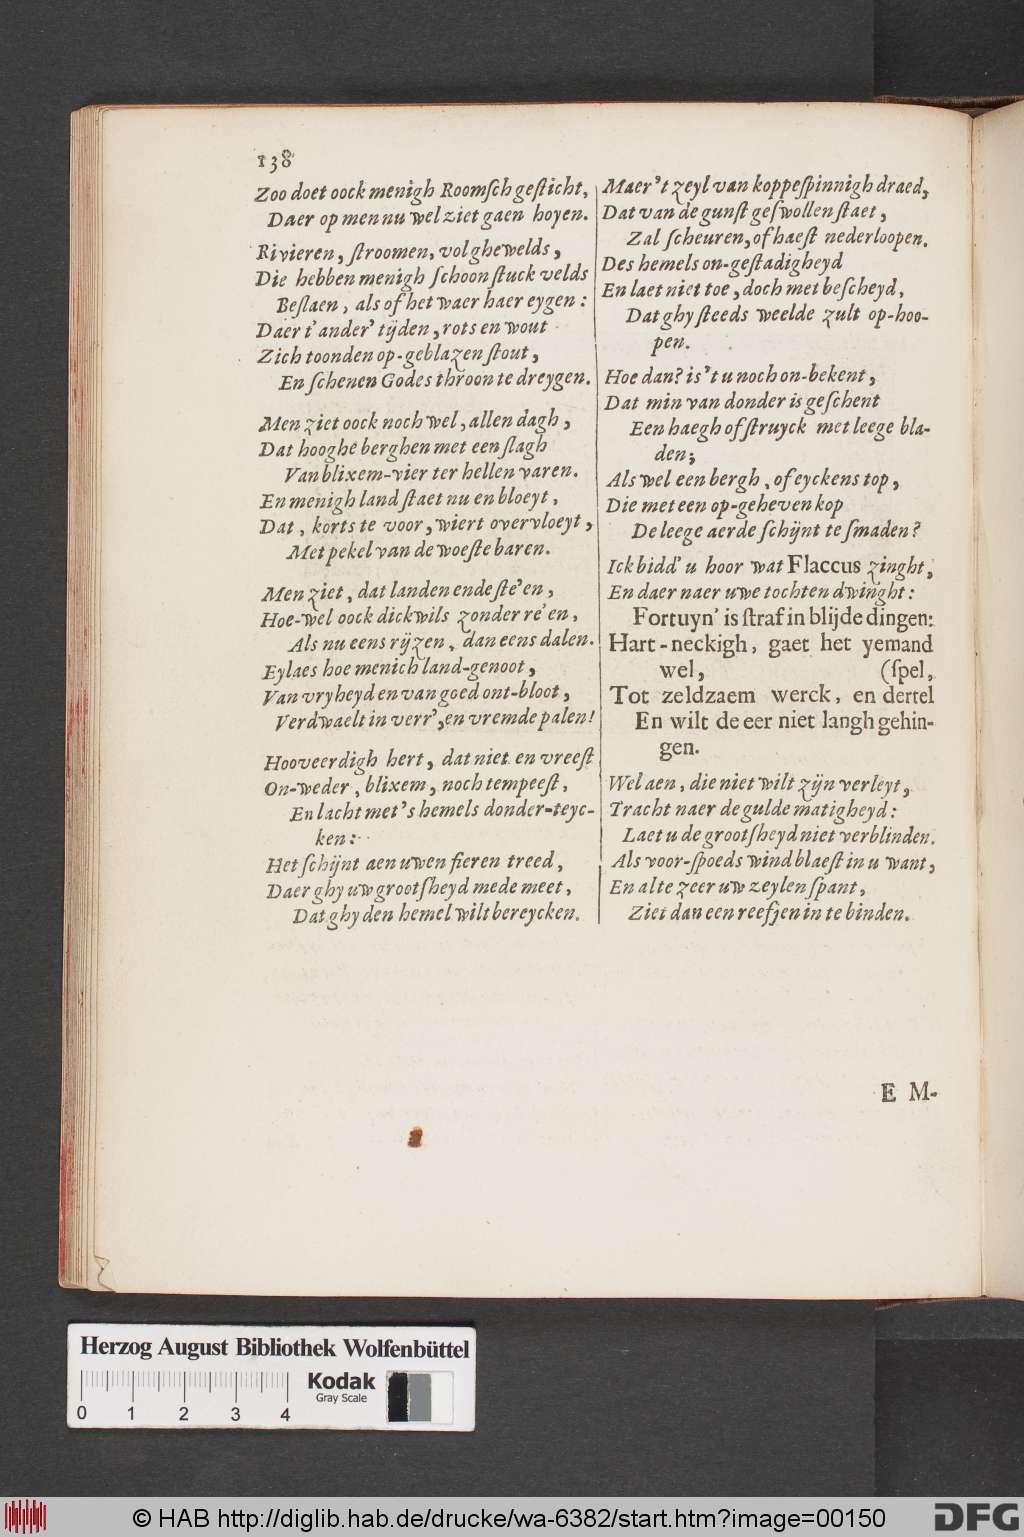 138
Zoo doet oock menigh Roomsch gesticht,
Daer op men nu wel ziet gaen hoyen.
Rivieren, stroomen, vol ghewelds,
Die hebben menigh schoon stuck velds
Beslaen, als of het waer haer eygen:
Daer t'ander' tijden, rots en wout
Zich toonden op-geblazen stout,
En schenen Godes throon te dreygen.
Men ziet oock noch wel, allen dagh,
Dat hooghe berghen met een slagh
Van blixem-vier ter hellen varen.
En menigh land staet nu en bloeyt,
Dat, korts te voor, wiert overvloeyt,
Met pekel van de woeste baren.
Men ziet, dat landen ende ste'en,
Hoe-wel oock dickwils zonder re'en,
Als nu eens rijzen, dan eens dalen.
Eylaes hoe menich land-genoot,
Van vryheyd en van goed ont-bloot,
Verdwaelt in verr', en vremde palen!
Hooveerdigh hert, dat niet en vreest
On-weder, blixem, noch tempeest,
En lacht met 's hemels donder-teyc-
ken:
Het schijnt aen uwen fieren treed,
Daer ghy uw grootsheyd mede meet,
Dat ghy den hemel wilt bereycken.
Maer 't zeyl van koppespinnigh draed,
Dat van de gunst geswollen staet,
Zal scheuren, of haest nederloopen.
Des hemels on-gestadigheyd
En laet niet toe, doch met bescheyd,
Dat ghy steeds weelde zult op-hoo-
pen.
Hoe dan? is 't u noch on-bekent,
Dat min van donder is geschent
Een haegh of struyck met leege bla-
den;
Als wel een bergh, of eyckens top,
Die met een op-geheven kop
De leege aerde schijnt te smaden?
Ick bidd' u hoor wat Flaccus zinght,
En daer naer uwe tochten dwinght:
Fortuyn' is straf in blijde dingen:
Hart-neckigh, gaet het yemand
wel, (spel,
Tot zeldzaem werck, en dertel
En wilt de eer niet langh gehin-
gen.
Wel aen, die niet wilt zijn verleyt,
Tracht naer de gulde matigheyd:
Laet u de grootsheyd niet verblinden.
Als voor-spoeds wind blaest in u want,
En al te zeer uw zeylen spant,
Ziet dan een reefjen in te binden.
E M-
Herzog August Bibliothek Wolfenbüttel
Kodak
Gray Scale
0 1 2 3 4
© HAB http://diglib.hab.de/drucke/wa-6382/start.htm?image=00150
DFG